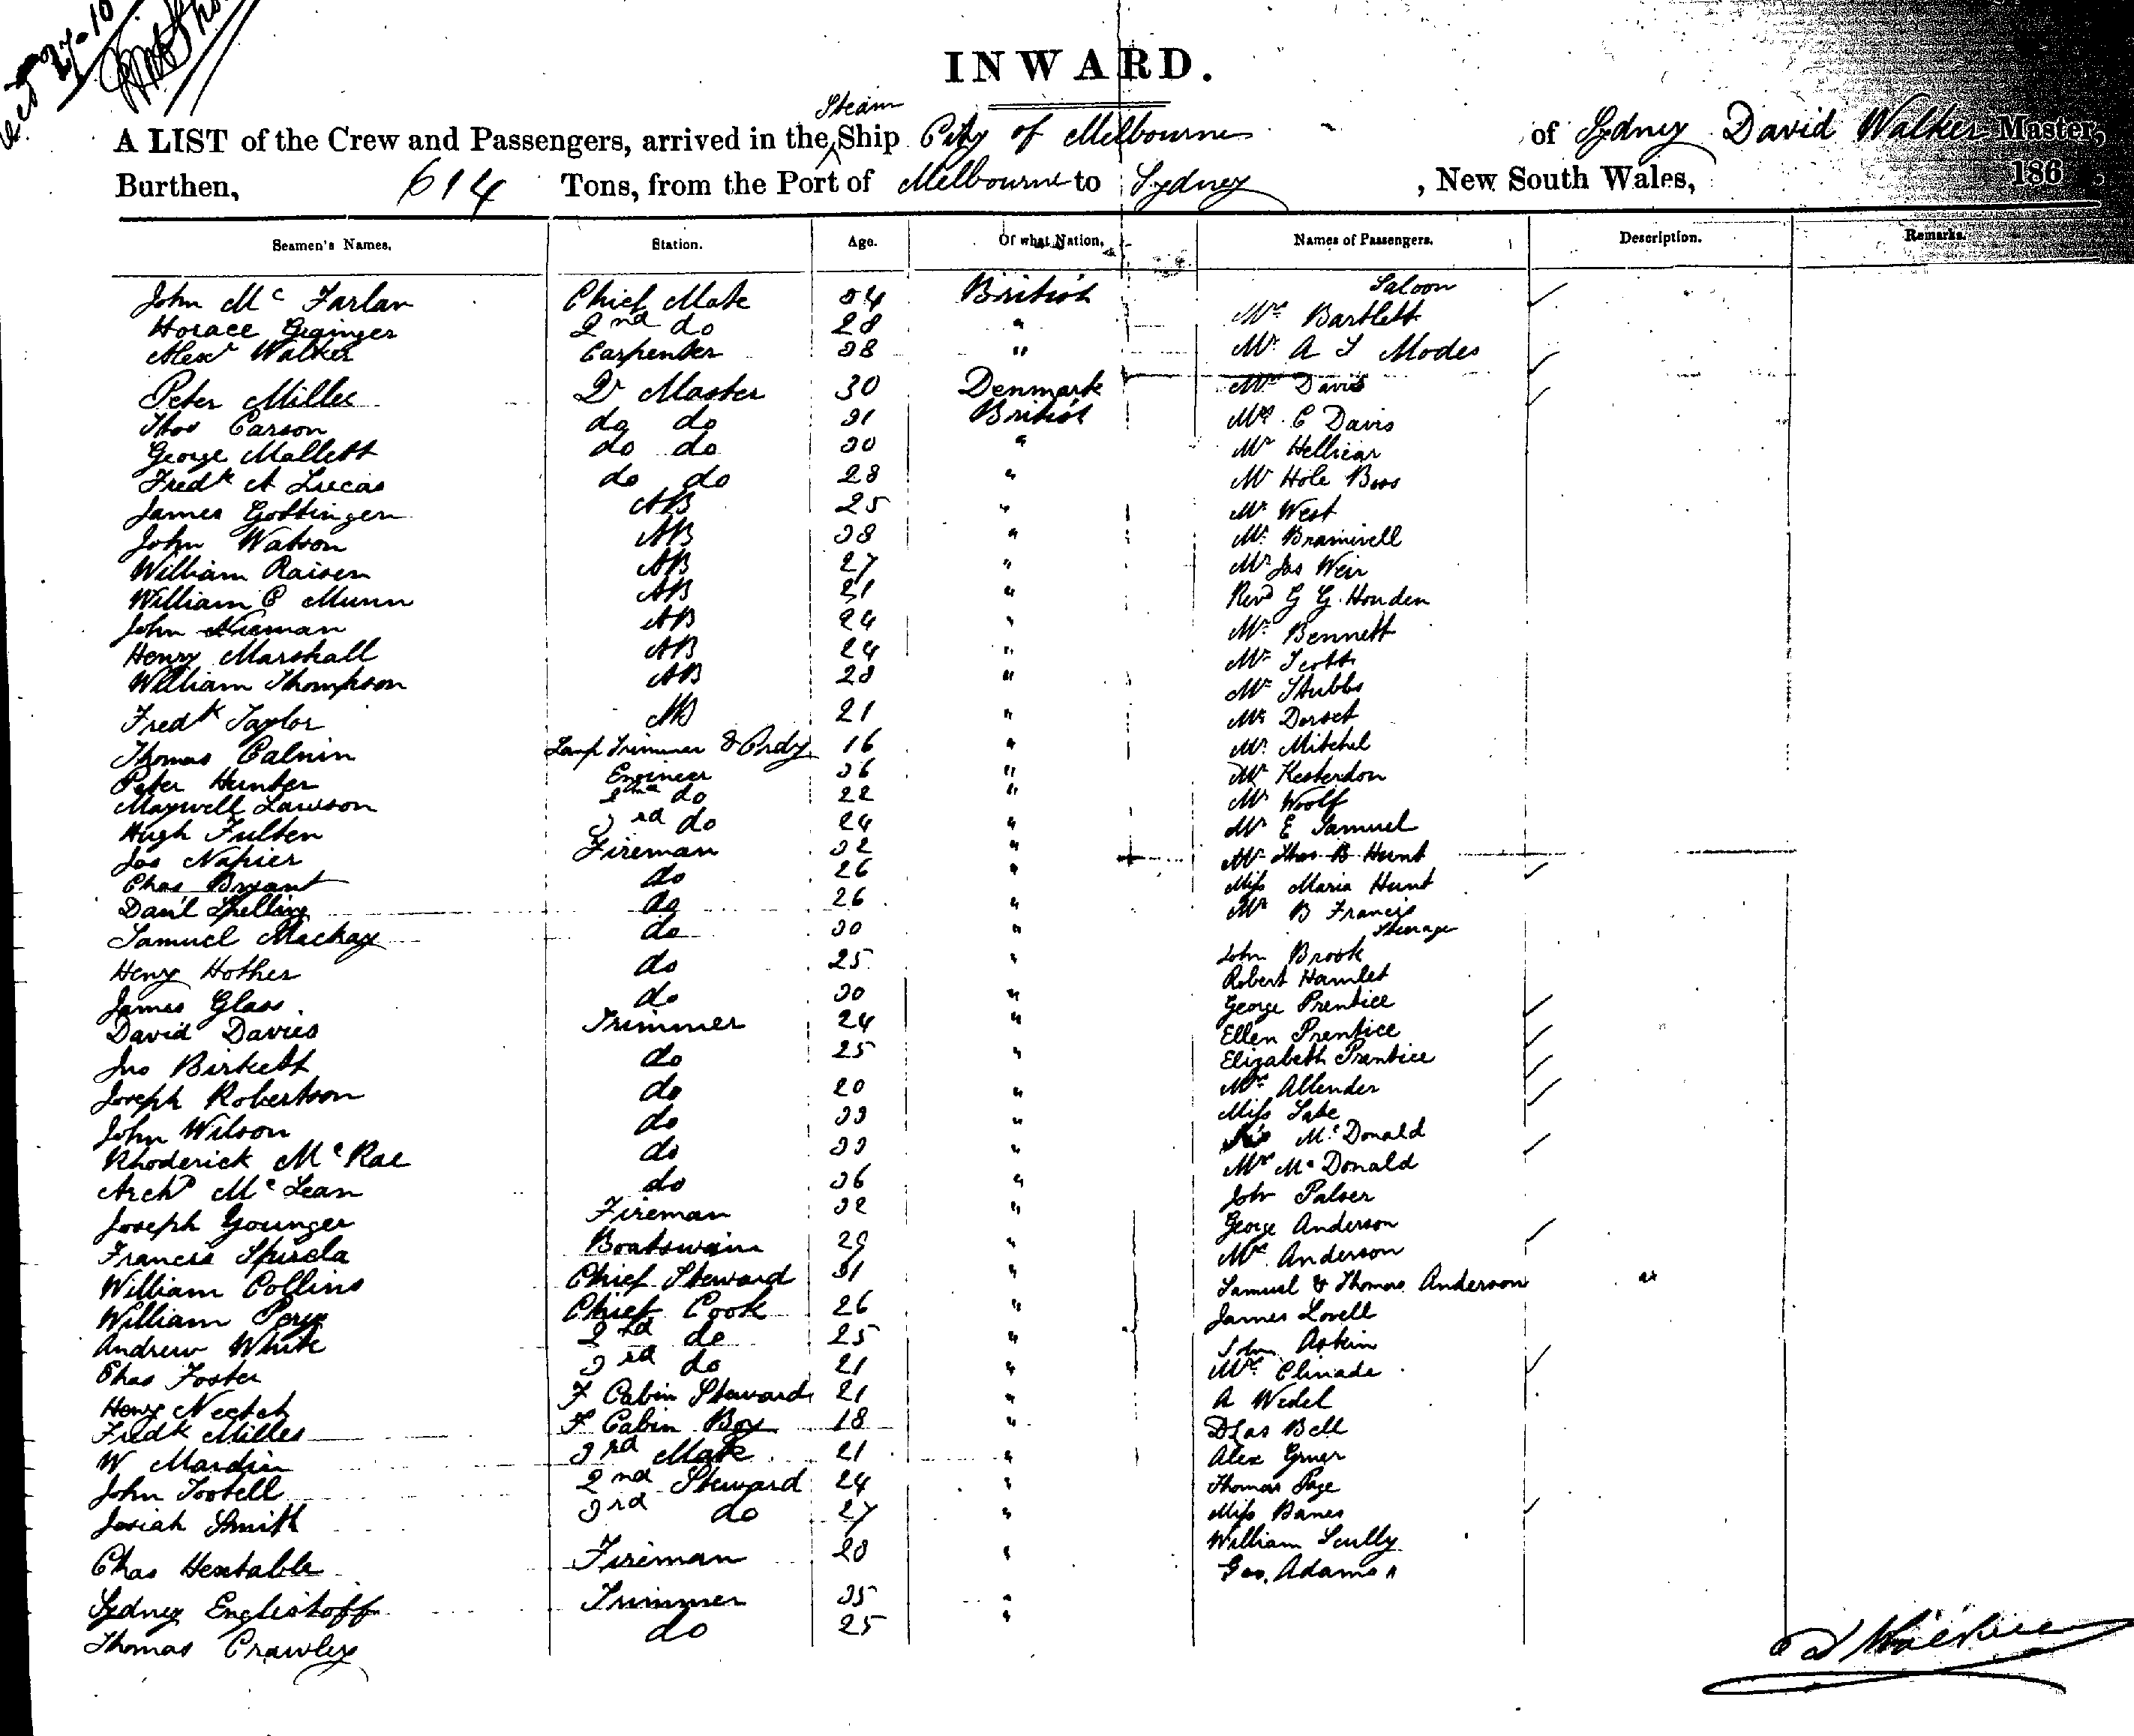 INWARD.
Steam
A LIST of the Crew and Passengers, arrived in the Ship City of Melbourne of Sydney David Walker Master,
Burthen, 614 Tons, from the Port of Melbourne to Sydney, New South Wales, 186 .
Seamen's Names. Station. Age. Of what Nation. Names of Passengers. Description. Remarks.
Saloon
John Mc Farlan Chief Mate 34 British Mrs Bartlett
Horace 2nd do 28 " Mr A S Modes
Alexr Walker Carpenter 38 "
Peter Miller Qr Master 30 Denmark Mrs Davis
Thos Carson do do 31 British Mrs C Davis
George Mallett do do 30 " Mr Helliear
Fredk A Lucas do do 28 " Mr Hole Boos
James Gottingen AB 25 " Mr West
John Watson AB 38 " Mr Bramwell
William Raisen AB 27 " Mr Jas Weir
William C Munn AB 21 " Revd G G Houden
John Nieman AB 24 " Mr Bennett
Henry Marshall AB 24 " Mr Scott
William Thompson AB 28 " Mr Stubbs
Fredk Taylor AB 21 " Mr Dorset
Thomas Calnin Lamp Trimmer & Ordy 16 " Mr Mitchel
Peter Hunter Engineer 36 " Mr Kesterdon
Maxwell Lawson 2nd do 22 " Mr Woolf
Hugh Fulten 3rd do 24 " Mr E Samuel
Jas Napier Fireman 32 " Mr Thos B Hunt
Chas Bryant do 26 " Miss Maria Hunt
Danl Spelling do 26 " Mr B Francis
Steerage
Samuel Mackay do 30 " John Brook
Robert Hamlet
Heny Hother do 25 " George Prentice
James Glass do 30 " Ellen Prentice
David Davies Trimmer 24 " Elizabeth Prentice
Jno Birkett do 25 " Mrs Allender
Joseph Robertson do 20 " Miss Lake
John Wilson do 33 " McDonald
Rhoderick McRae do 33 " Mrs McDonald
Archd McLean do 36 " John Palser
Joseph Younger Fireman 32 " George Anderson
Francis Spirela Boatswain 29 " Mrs Anderson
William Collins Chief Steward 31 " Samuel & Thomas Anderson
William Pery Chief Cook 26 " James Lovell
Andrew White 2nd do 25 " John Askin
Chas Foster 3rd do 21 " Mrs Clinade
Heny Neetch F Cabin Steward 21 " A Wedel
Fredk Miller F Cabin Boy 18 " Bell
W Mardin 3rd Mate 21 " Alex
John Tootell 2nd Steward 24 " Thomas Page
Josiah Smith 3rd do 27 " Miss Banes
William Scully
Chas Hextable Fireman 28 " Geo. Adams
Sydney Englishoff Trimmer 35 "
Thomas Crawley do 25 "
D Walker